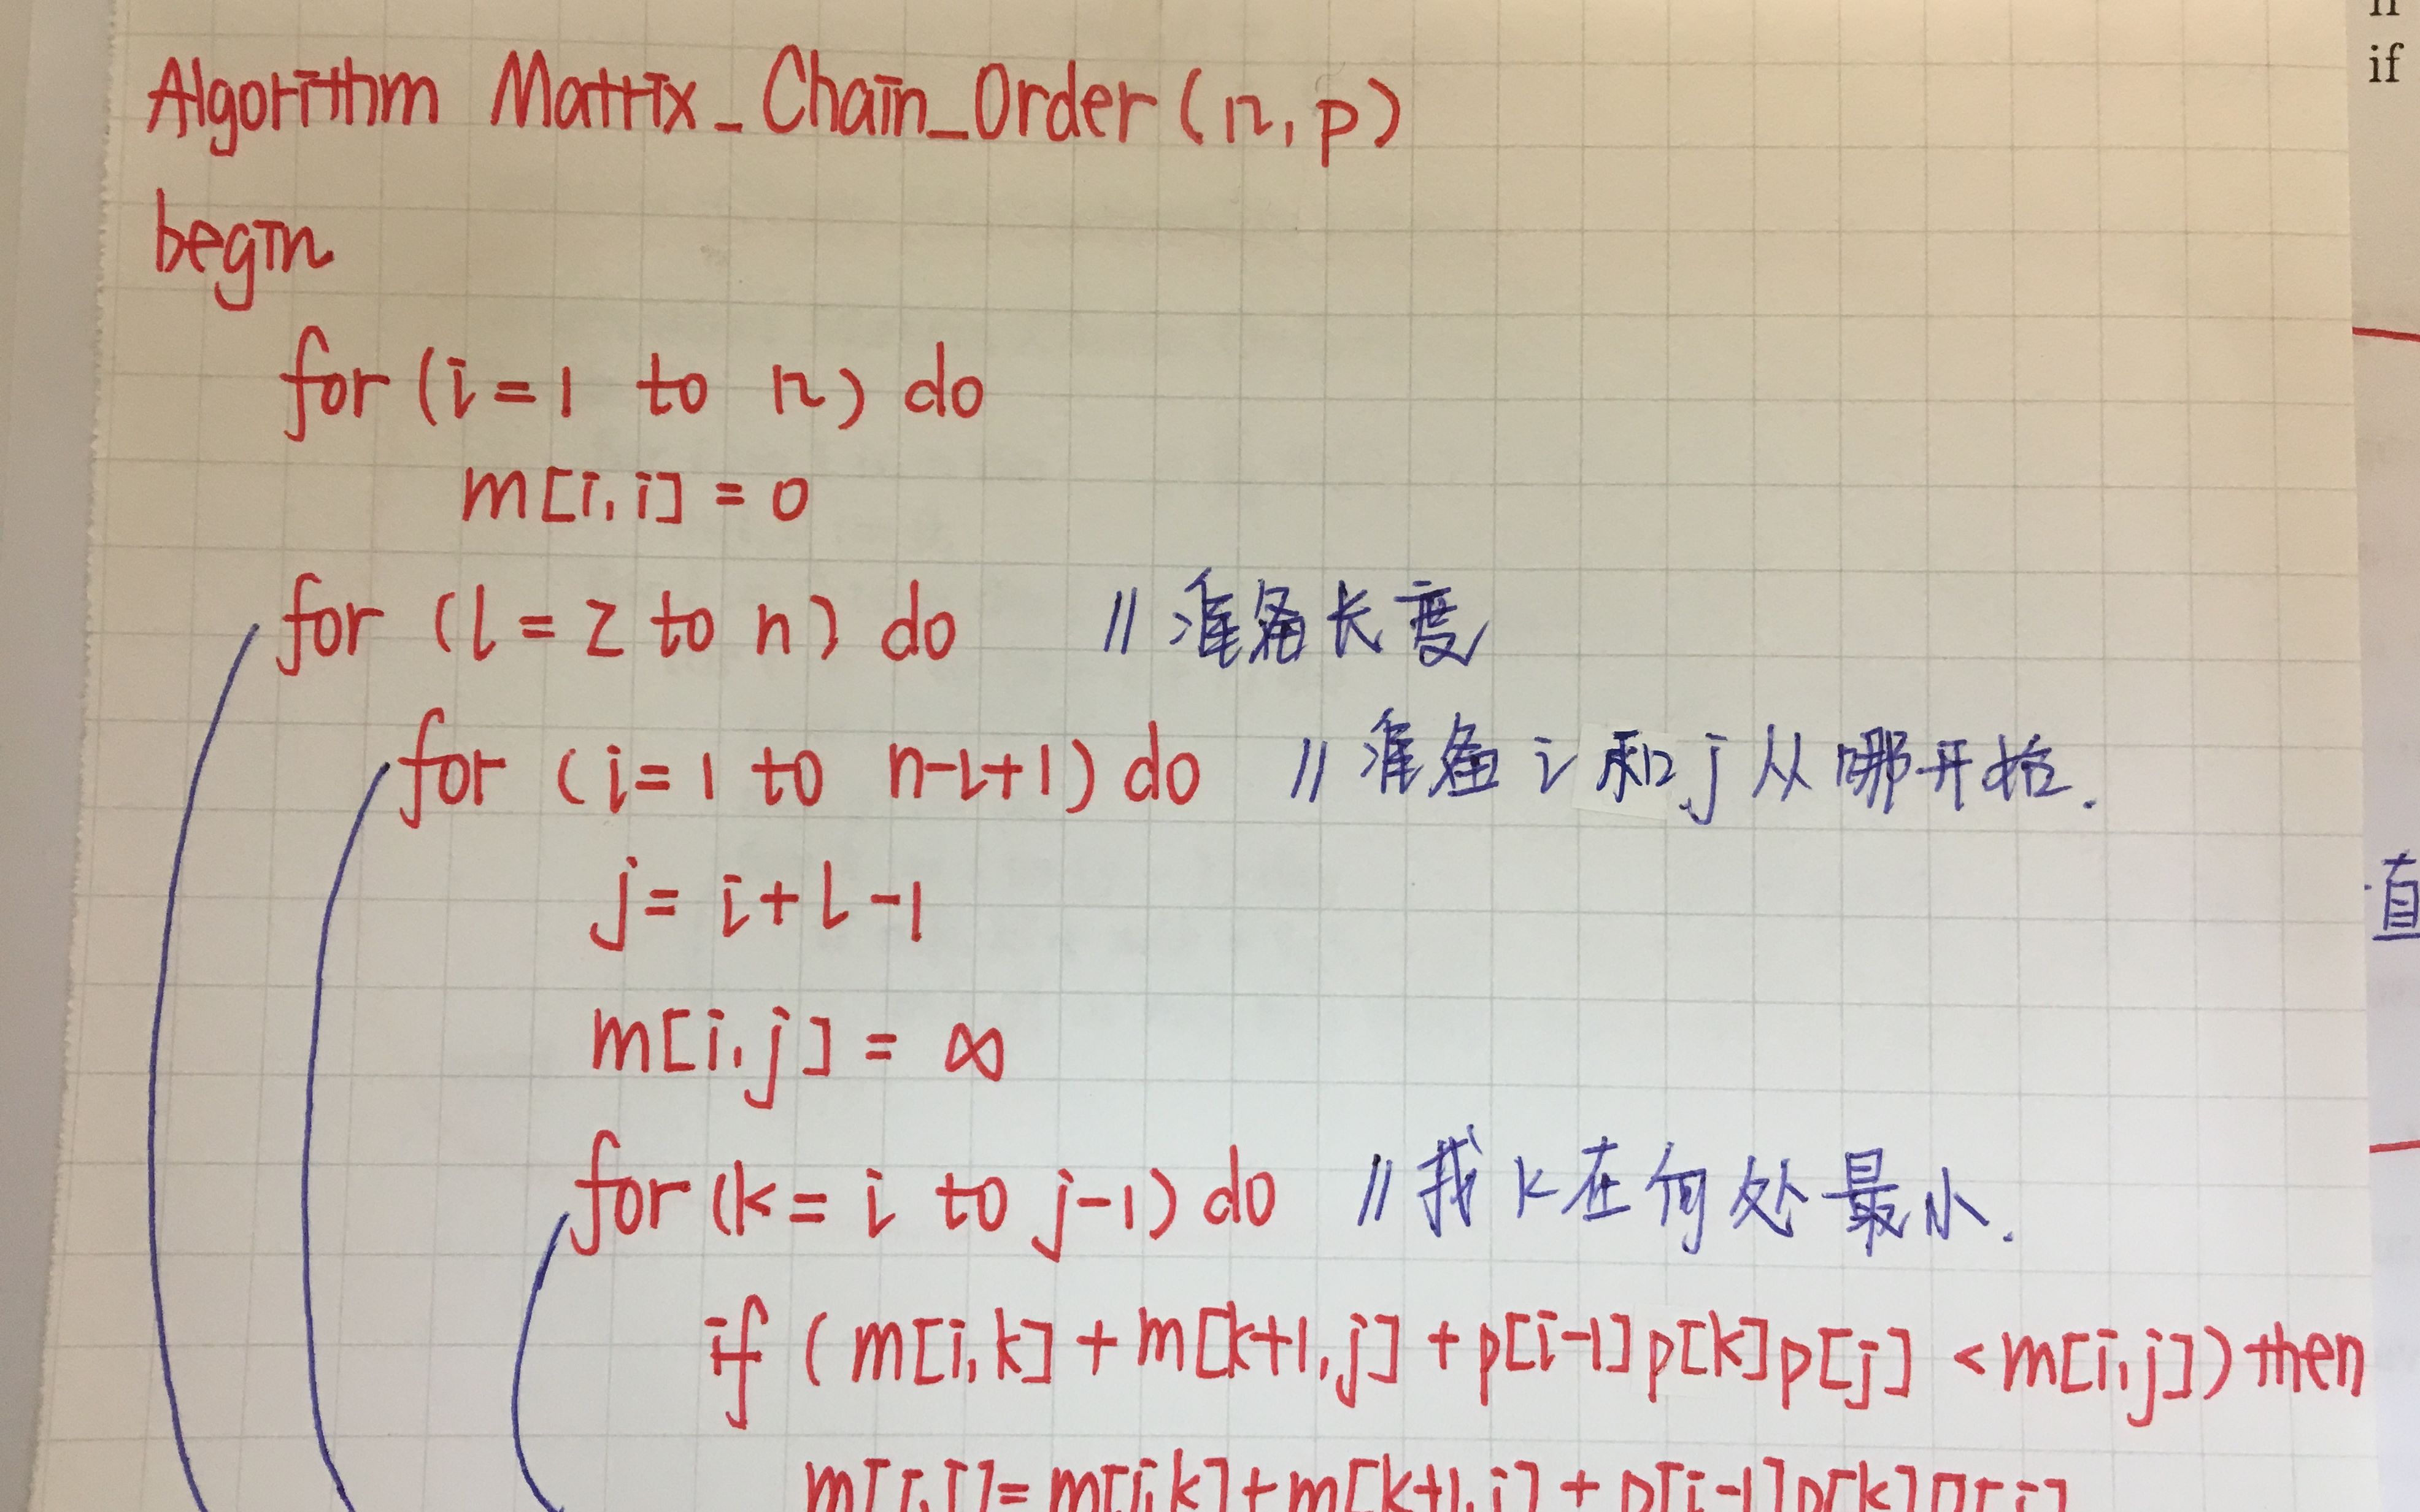 if
Algorithm Matrix_Chain_Order(n, p)
begin
for (i = 1 to n) do
m[i, i] = 0
for (l = 2 to n) do // 准备长度
for (i = 1 to n-l+1) do // 准备 i 和 j 从哪开始.
j = i + l - 1
m[i, j] = ∞
for (k = i to j-1) do // 找 k 在何处最小.
if (m[i, k] + m[k+1, j] + p[i-1] p[k] p[j] < m[i, j]) then
m[i, j] = m[i, k] + m[k+1, j] + p[i-1] p[k] p[j]